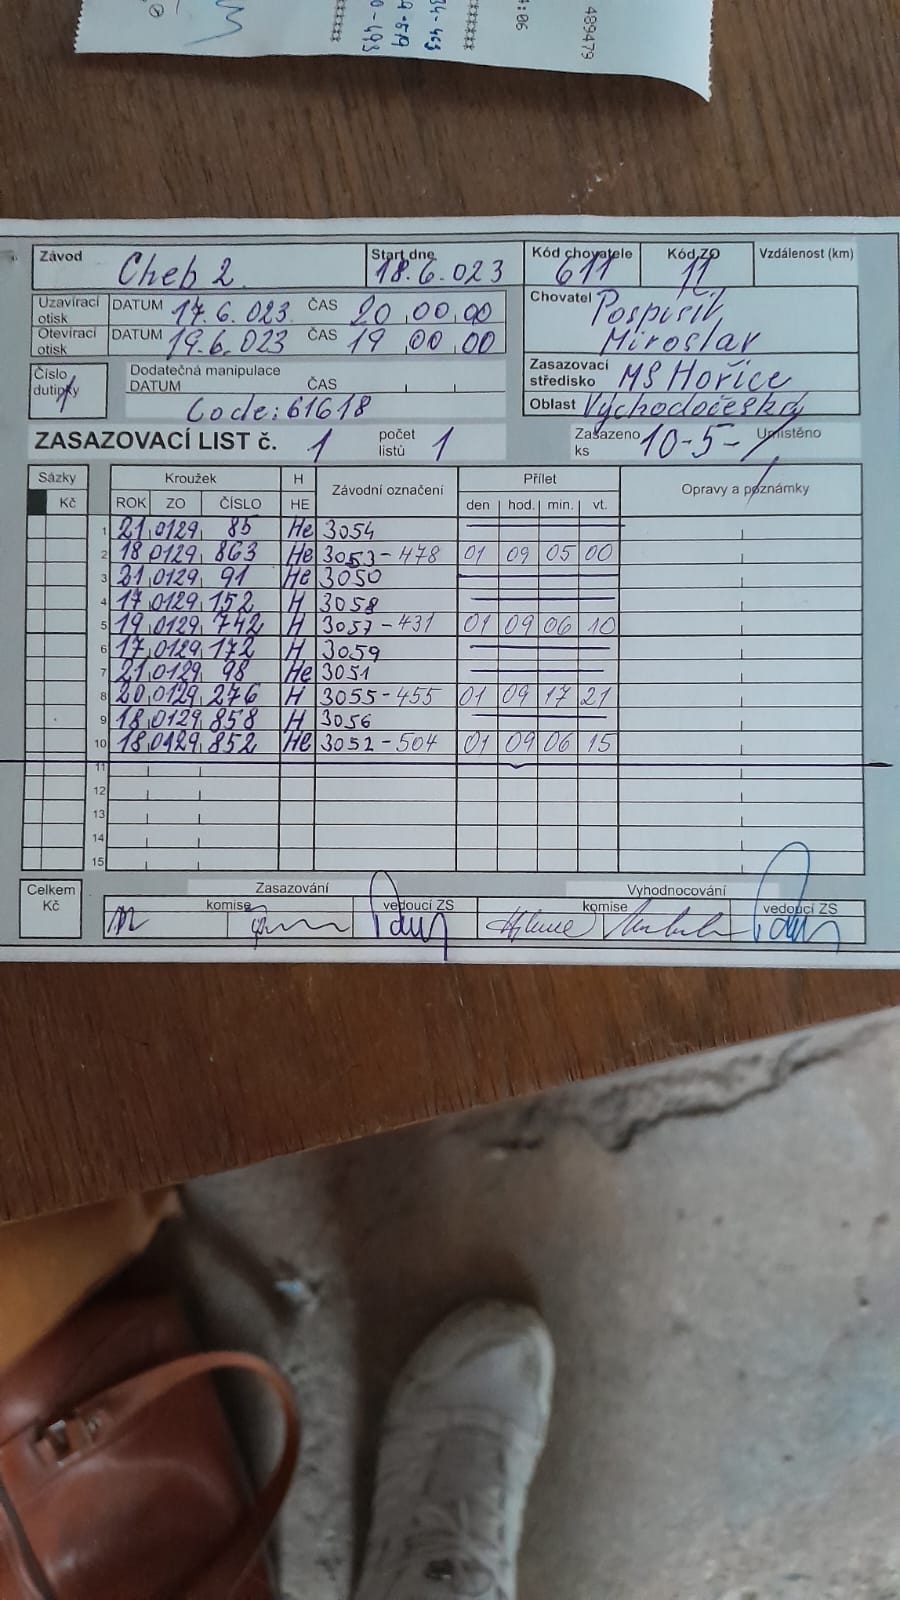 489479
4:06
Závod Cheb 2 Start dne 18.6.023 Kód chovatele 611 Kód ZO 11 Vzdálenost (km)
Uzavírací otisk DATUM 17.6.023. ČAS 20 00 00
Otevírací otisk DATUM 19.6.023 ČAS 19 00 00
Chovatel Pospíšil
Miroslav
Číslo dutinky 1 Dodatečná manipulace
DATUM ČAS
Code: 61618
Zasazovací středisko MS Hořice
Oblast Východočeská
ZASAZOVACÍ LIST č. 1 počet listů 1 Zasazeno ks 10-5-1 Umístěno
Sázky Kroužek H Závodní označení Přílet Opravy a poznámky
Kč ROK ZO ČÍSLO HE den hod. min. vt.
1 21 0129 85 He 3054
2 18 0129 863 He 3053-478 01 09 05 00
3 21 0129 91 He 3050
4 17 0129 152 H 3058
5 19 0129 742 H 3057-431 01 09 06 10
6 17 0129 172 H 3059
7 21 0129 98 He 3051
8 20 0129 276 H 3055-455 01 09 17 21
9 18 0129 858 H 3056
10 18 0129 852 He 3052-504 01 09 06 15
11
12
13
14
15
Celkem Kč Zasazování Vyhodnocování
komise vedoucí ZS komise vedoucí ZS